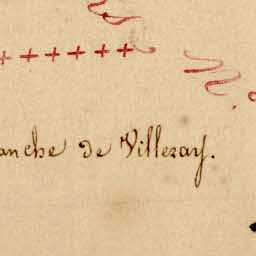 anche de Villeray.